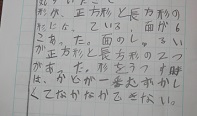 形が、正方形と長方形の
形になっている。面が6
こあった。面のしゅるい
が正方形と長方形の2つ
があった。形をうつす時
は、かどが一番むずかし
くてなかなかできない。